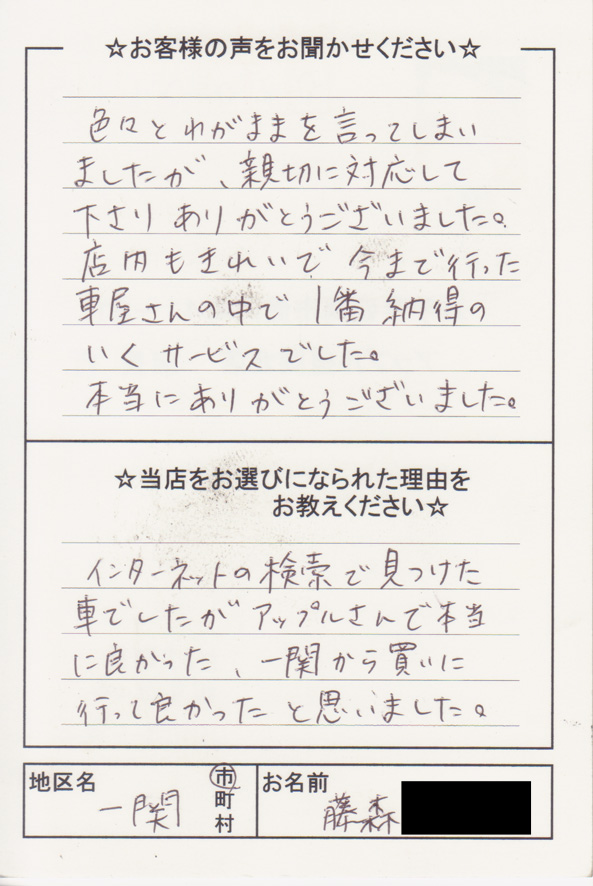 ☆お客様の声をお聞かせください☆
色々とわがままを言ってしまい
ましたが、親切に対応して
下さりありがとうございました。
店内もきれいで今まで行った
車屋さんの中で1番納得の
いくサービスでした。
本当にありがとうございました。
☆当店をお選びになられた理由を
お教えください☆
インターネットの検索で見つけた
車でしたがアップルさんで本当
に良かった、一関から買いに
行って良かったと思いました。
地区名
一関
市
町
村
お名前
藤森